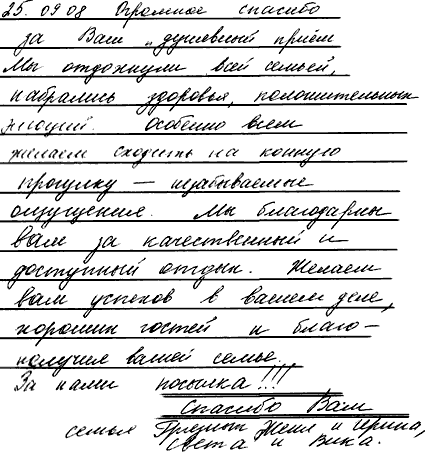 25.09.08 Огромное спасибо
за Ваш „душевный приём
Мы отдохнули всей семьей,
набрались здоровья, положительных
эмоций. Особенно всем
желаем сходить на конную
прогулку — незабываемые
ощущения. Мы благодарны
вам за качественный и
доступный отдых. Желаем
вам успехов в вашем деле,
хороших гостей и благо-
получия вашей семье.
За нами посылка!!!
Спасибо Вам
семья Женя и Ирина,
Света и Вика.